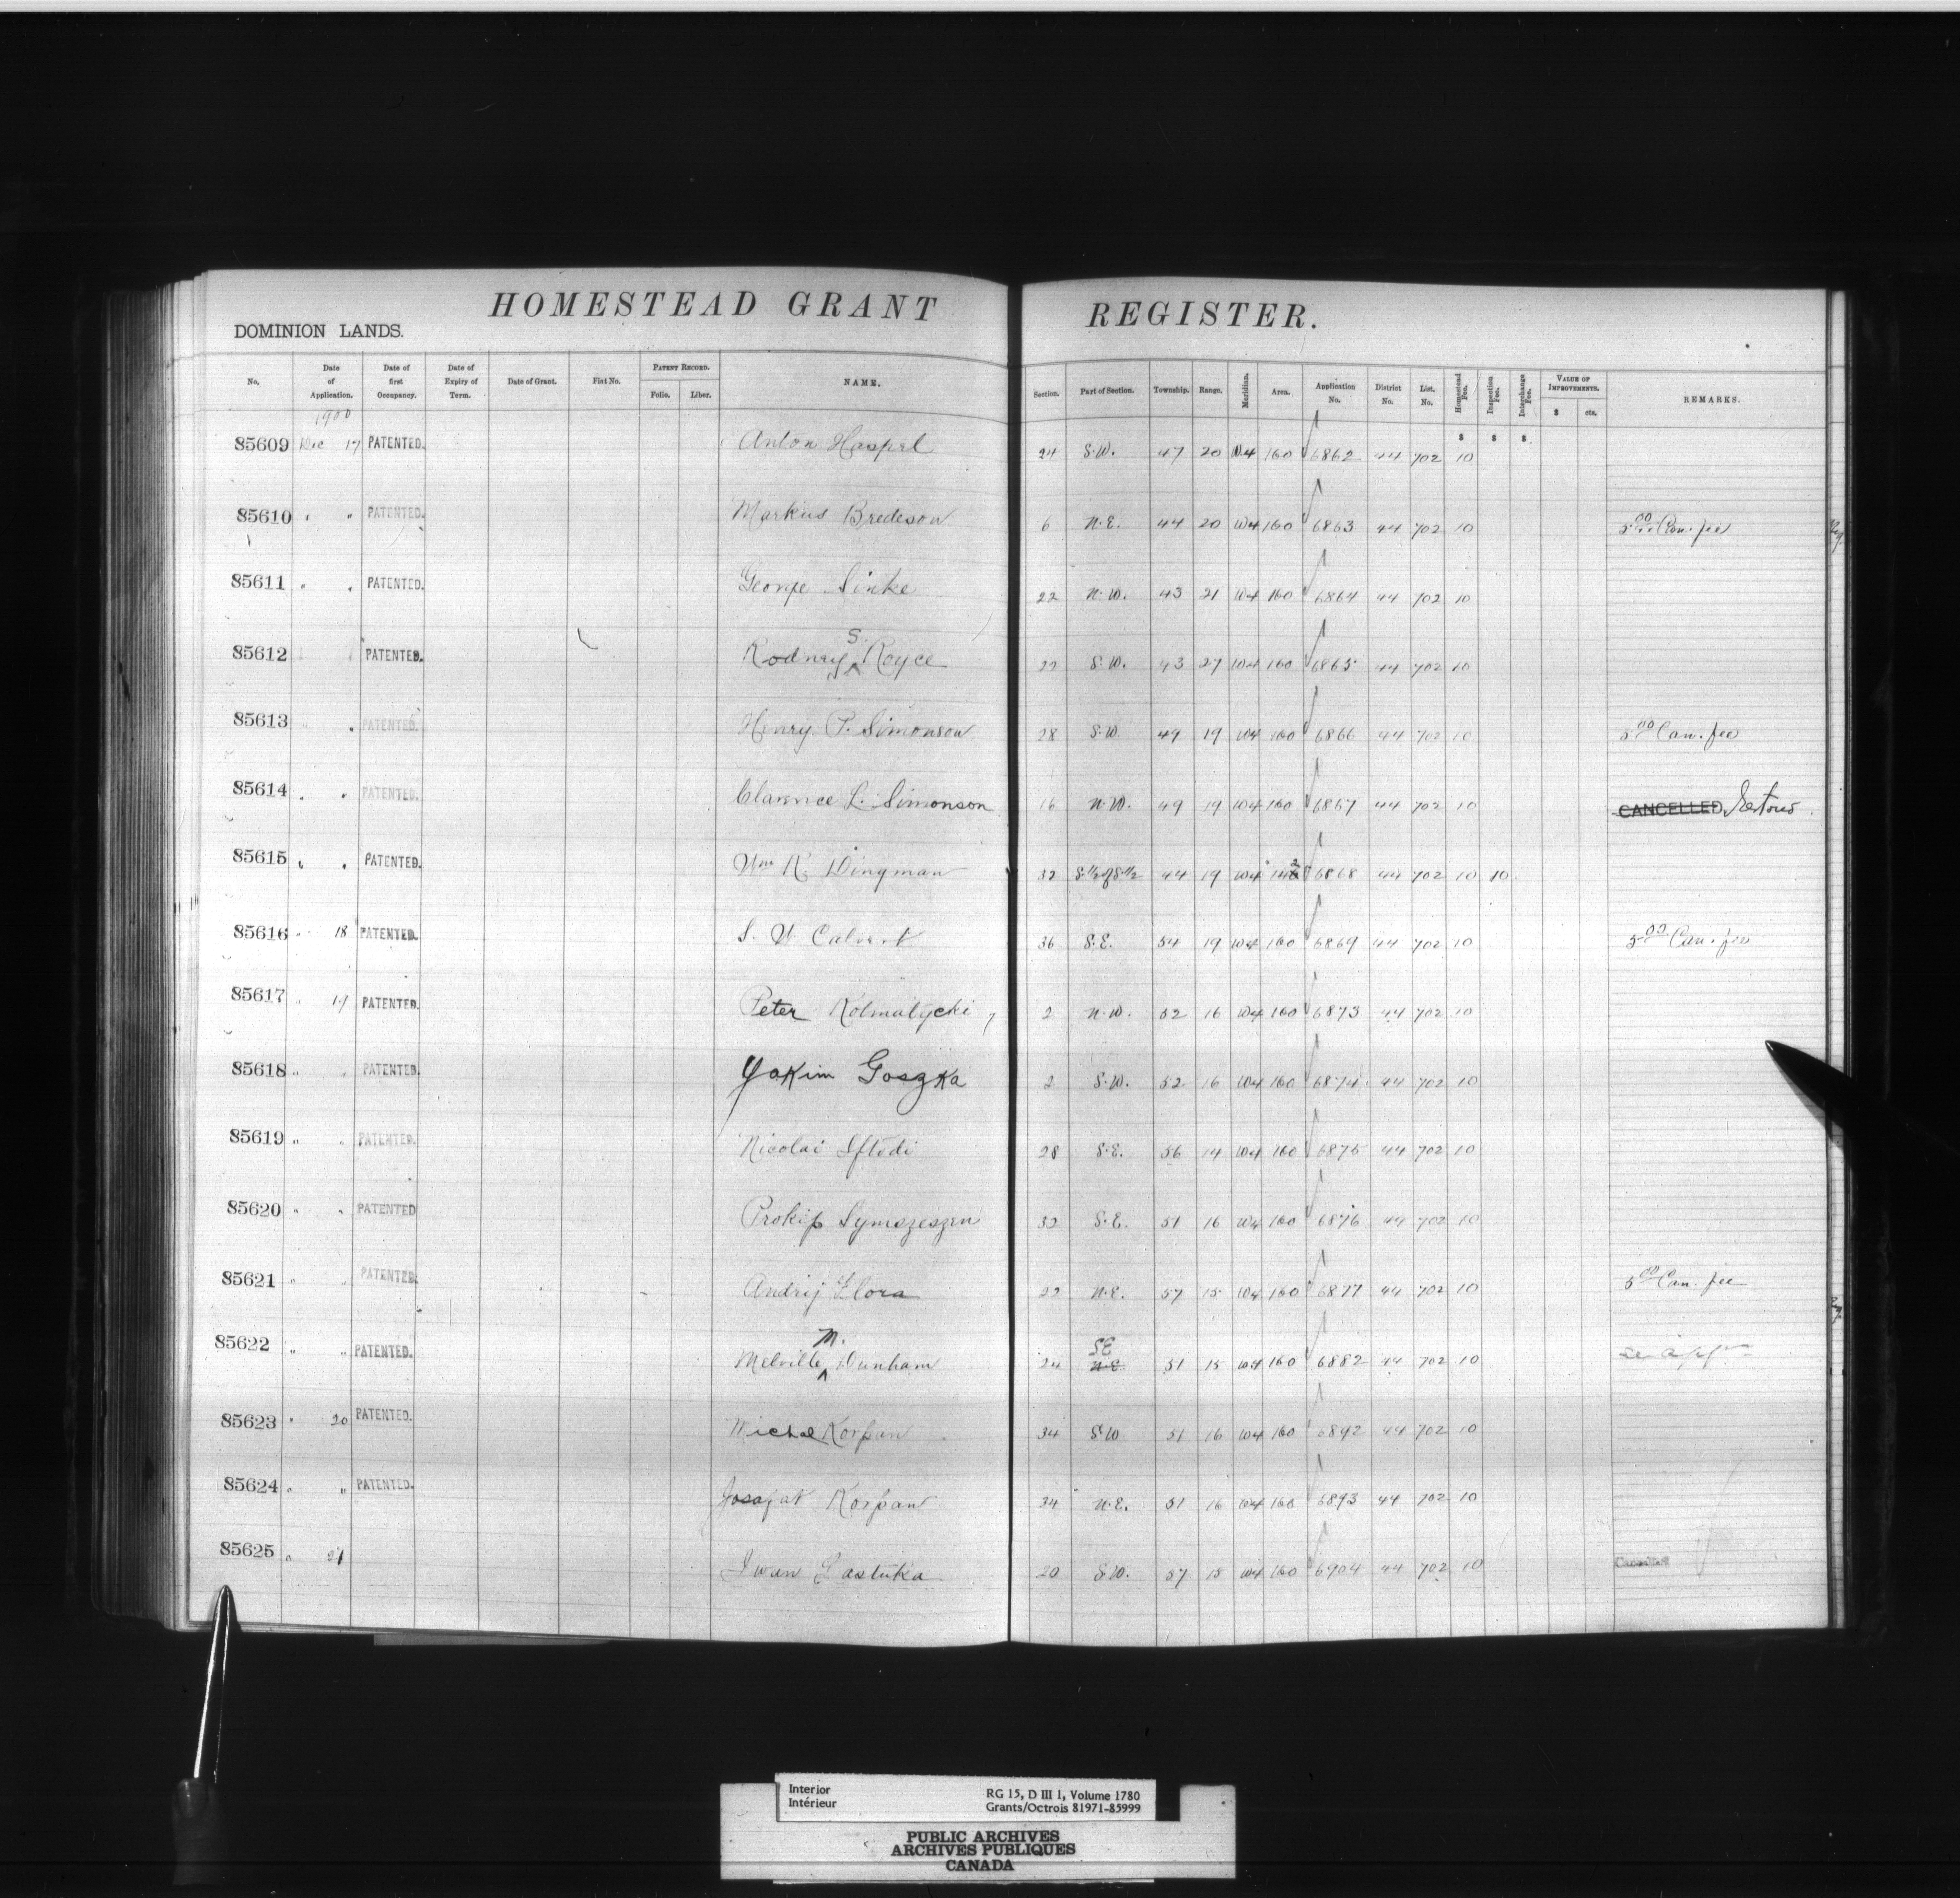 HOMESTEAD GRANT REGISTER.
DOMINION LANDS.
No. Date of Application. Date of first Occupancy. Date of Expiry of Term. Date of Grant. Fiat No. PATENT RECORD. Folio. Liber. NAME. Section. Part of Section. Township. Range. Meridian. Area. Application No. District No. List. No. Homestead Fee. Inspection Fee. Interchange Fee. VALUE OF IMPROVEMENTS. $ cts. REMARKS.
1900
85609 Dec 17 PATENTED. Anton Haspel 24 S.W. 47 20 W4 160 6862 44 702 $ 10 $ $
85610 " " PATENTED. Markus Bredeson 6 N.E. 44 20 W4 160 6863 44 702 10 5.00 Can. fee
85611 " " PATENTED. George Sinke 22 N.W. 43 21 W4 160 6864 44 702 10
85612 " PATENTED. Rodney S. Royce 22 S.W. 43 27 W4 160 6865 44 702 10
85613 " " PATENTED. Henry P. Simonson 28 S.W. 49 19 W4 160 6866 44 702 10 5.00 Can. fee
85614 " " PATENTED. Clarence L. Simonson 16 N.W. 49 19 W4 160 6867 44 702 10 CANCELLED
85615 " " PATENTED. Wm R. Dingman 32 S.1/2 of S.1/2 44 19 W4 6868 44 702 10 10
85616 " 18 PATENTED. S. W. Calvert 36 S.E. 54 19 W4 160 6869 44 702 10 5.00 Can. fee
85617 " 19 PATENTED. Peter Kolmatycki 2 N.W. 52 16 W4 160 6873 44 702 10
85618 " " PATENTED. Yakim Goszka 2 S.W. 52 16 W4 160 6874 44 702 10
85619 " " PATENTED. Nicolai Iftodi 28 S.E. 56 14 W4 160 6875 44 702 10
85620 " " PATENTED Prokip Symszeszen 32 S.E. 51 16 W4 160 6876 44 702 10
85621 " " PATENTED. Andrij Flora 22 N.E. 57 15 W4 160 6877 44 702 10 5.00 Can. fee
85622 " " PATENTED. Melville M. Dunham 24 N.E. SE 51 15 W4 160 6882 44 702 10
85623 " 20 PATENTED. Michal Korpan 34 S.W 51 16 W4 160 6892 44 702 10
85624 " " PATENTED. Josafat Korpan 34 N.E. 51 16 W4 160 6893 44 702 10
85625 " 21 Iwan Lastuka 20 S.W. 57 15 W4 160 6904 44 702 10 Cancelled
Interior
Intérieur
RG 15, D III 1, Volume 1780
Grants/Octrois 81971-85999
PUBLIC ARCHIVES
ARCHIVES PUBLIQUES
CANADA